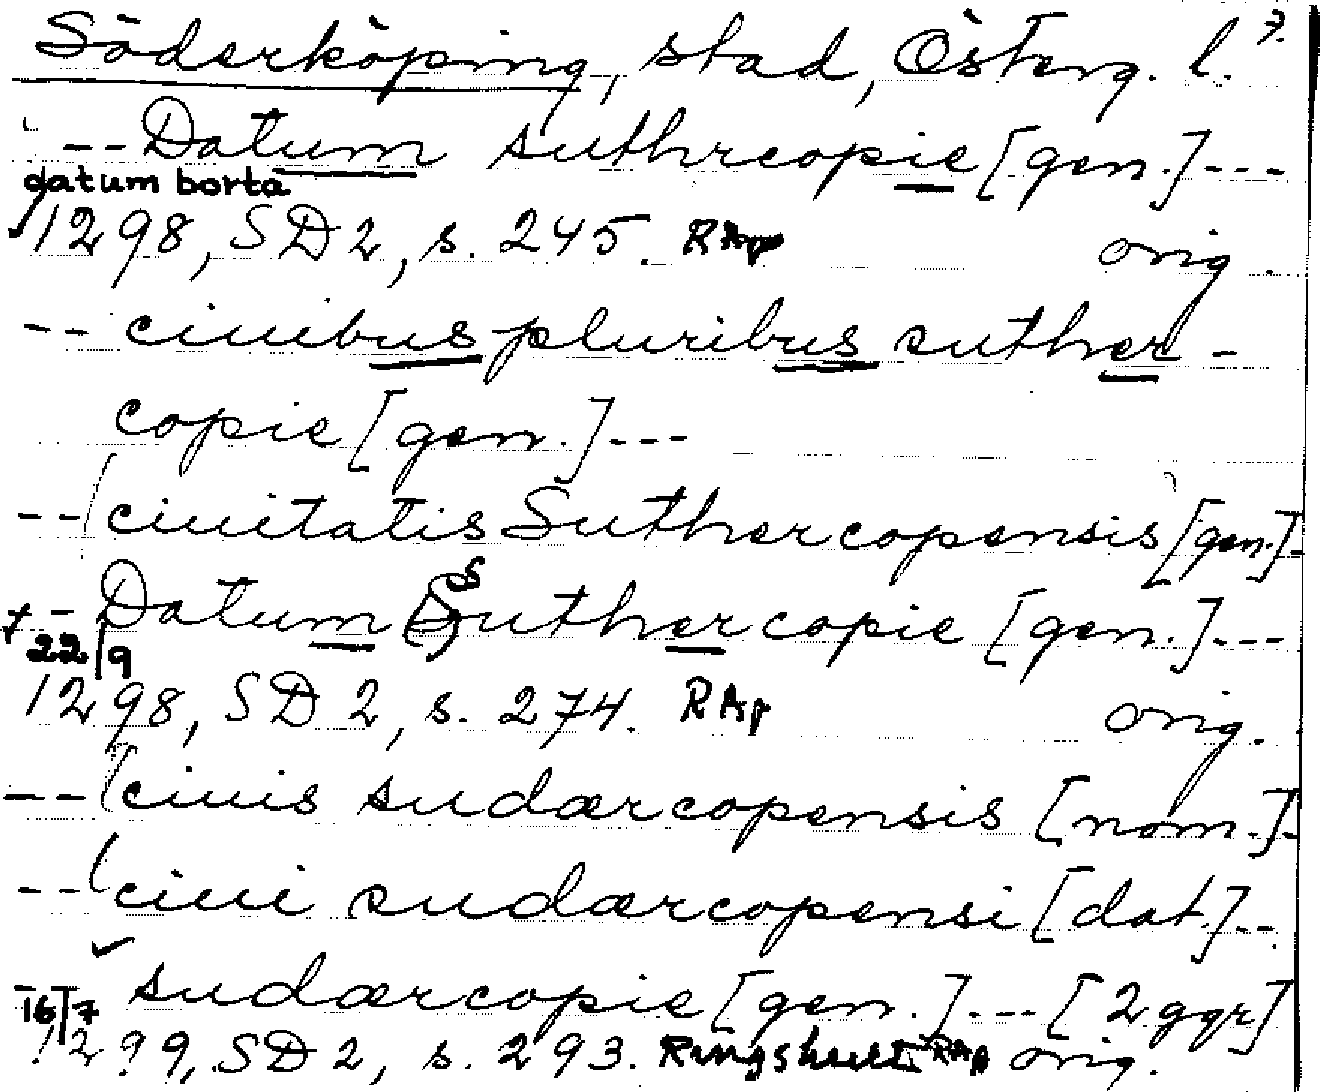 Söderköping, stad, Österg. l. 7.
-- Datum suthercopie [gen.] ---
datum borta
1298, SD 2, s. 245. RAp orig.
-- ciuibus pluribus suther-
copie [gen.] ---
-- ciuitatis Suthercopensis [gen.]-
-- Datum Suthercopie [gen.] ---
22/9
1298, SD 2, s. 274. RAp orig.
-- ciuis sudærcopensis [nom.]-
-- ciui sudærcopensi [dat.] --
sudærcopie [gen.] --- [2 ggr]
16/7
1299, SD 2, s. 293. RAp orig.